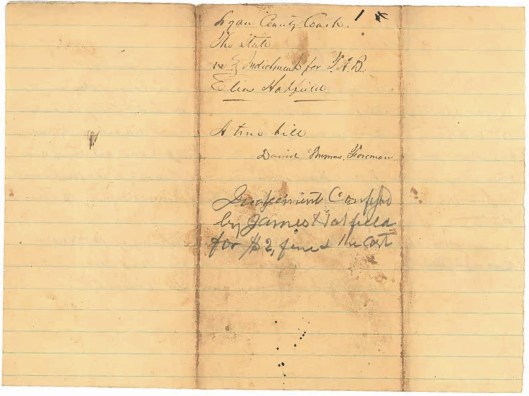 Logan County Court. 1
The State
vs } Indictment for T.A.B.
Elias Hatfield
A true bill
David Foreman
Judgement Confessed
by James Hatfield
for $2, fine & the cost